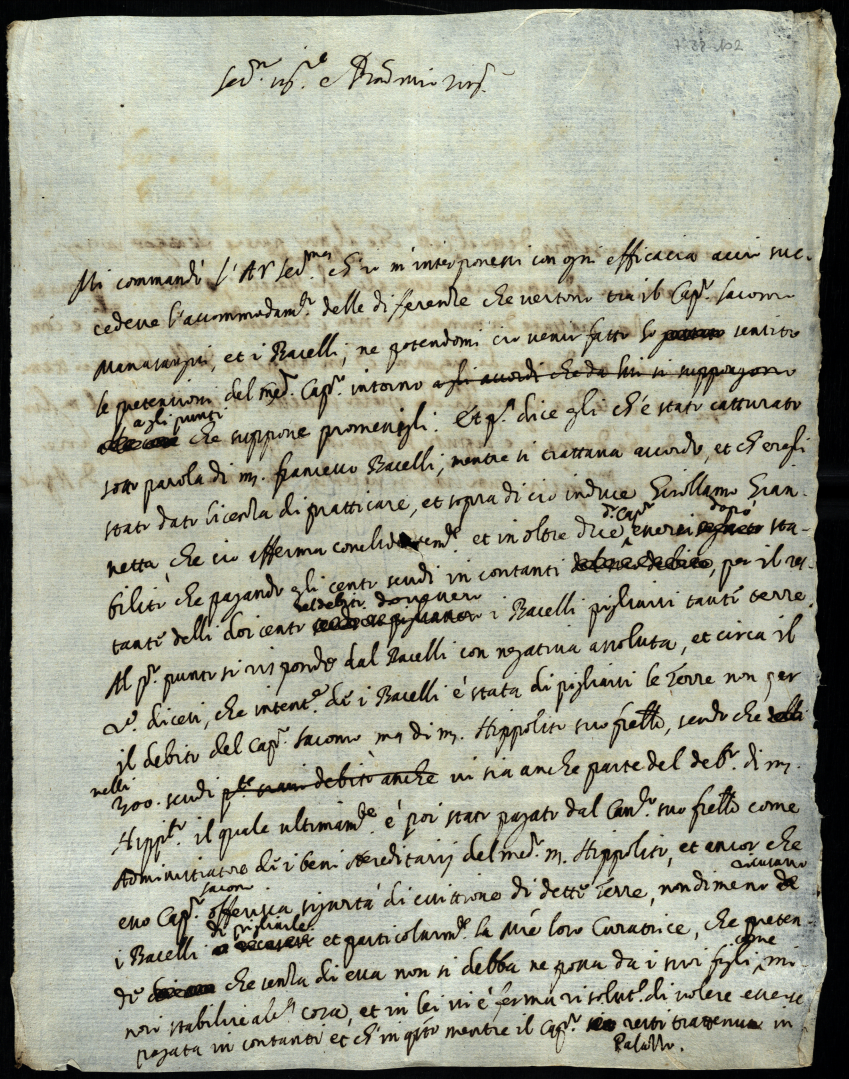 Ser.mo sig.re e Pron mio sig.r
Mi commandò l'A V Ser.ma ch'io m'interponessi con ogni efficacia acciò suc-
cedeve l'accommodam.to delle differenze che vertono tra il Cap.o Jacomo
et i Bacelli; ne potendomi ciò venir fatto ho sentito
le pretensioni del med.o Cap.o intorno agli accordi che da lui si suppongono
agli punti
che suppone promessigli: Et p.a dice egli ch'è stato catturato
sotto parola di m. francesco Bacelli, mentre si trattana accordo, et ch'erasi
stato dato licenza di pratticare, et sopra di ciò induce Girollamo Gian-
netta che ciò afferma et in oltre dice d.o Cap.o essersi dopò sta-
bilito che pagando gli cento scudi in contanti, per il res-
tante delli doicento del debito doveveri i Bacelli pigliarsi tante terre.
Al p.o punto si risponde dal Bacelli con negativa assoluta, et circa il
2.o dicesi, che intent.e di i Bacelli è stata di pigliarsi le Terre non per
il debito del Cap.o Jacomo ma di m. Hippolito suo frello, sendo che
nelli
300. scudi debito anche vi sia anche parte del deb.o di m.
Hipp.to il quale ultimam.e è poi stato pagato dal suo frello come
Aministratore di i beni hereditarij del med.o m. Hippolito, et ancor che
esso Cap.o Jacomo offerisca sigurtà di evittione di dette Terre, nondimeno ricusano
i Bacelli di pigliarle et particolarm.e la Mre loro Curatrice, che preten-
de che senza di essa non si debba ne possa da i suoi figli, come mi
nori stabilire alc.a cosa, et in lei vi è ferma risolut.e di volere essere
pagata in contanti et ch'in q.to mentre il Cap.o resti trattenuto in
Palazzo.